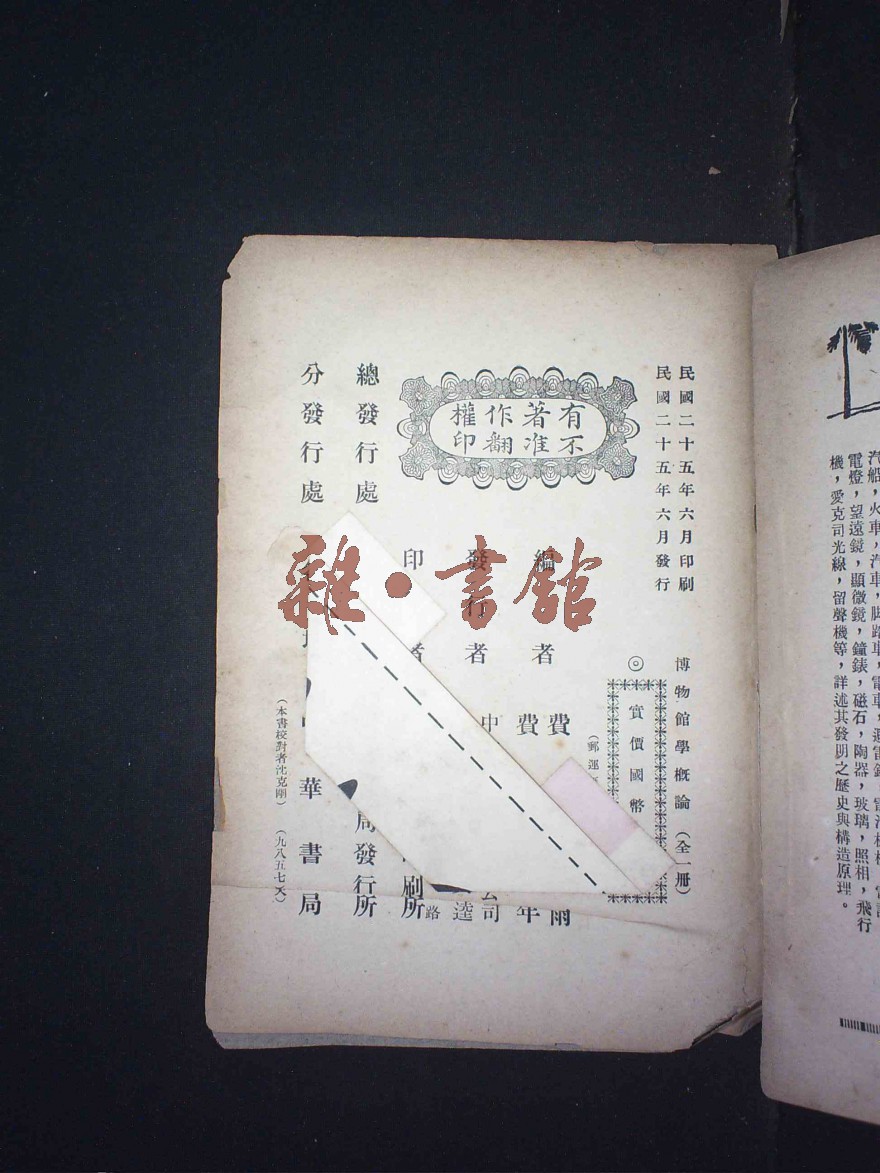 民國二十五年六月印刷
民國二十五年六月發行
博物館學概論（全一冊）
◎實價國幣
（郵運
有著作權
不准翻印
編者
費
雨
費
年
發行者
中
公司
逵
路
印
者
刷所
總發行處
局發行所
分發行處
華書局
（本書校對者沈克剛）
（九八五七天）
雜·書館
汽船，火車，汽車，脚踏車，電車，
電燈，望遠鏡，顯微鏡，鐘錶，磁石，陶器，玻璃，照相，飛行
機，愛克司光線，留聲機等，詳述其發明之歷史與構造原理。